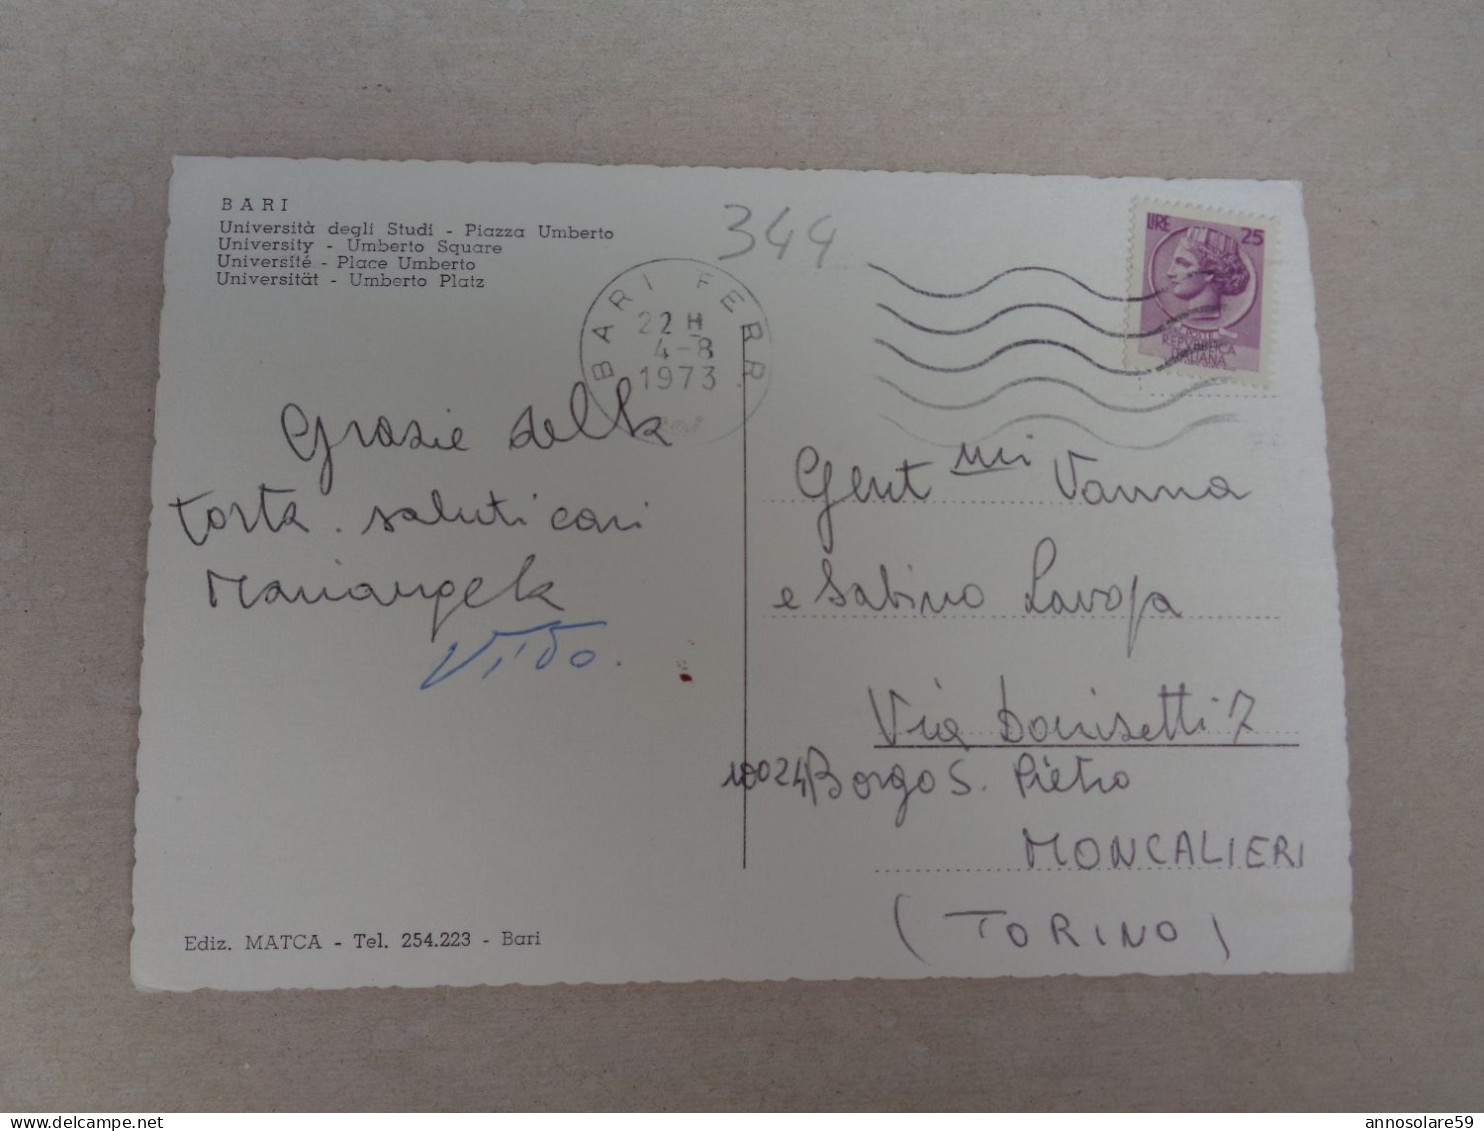 BARI
Università degli Studi - Piazza Umberto
University - Umberto Square
Université - Place Umberto
Universität - Umberto Platz
344
BARI FERR.
22 H
4-8
1973
LIRE 25
POSTE
REPVBBLICA
ITALIANA
Grazie della
torta. saluti cari
Mariangela
Vito.
Gent mi Vanna
e Sabino
Via Donizetti 7
10024 Borgo S. Pietro
MONCALIERI
(TORINO)
Ediz. MATCA - Tel. 254.223 - Bari
delcampe.net
annosolare59